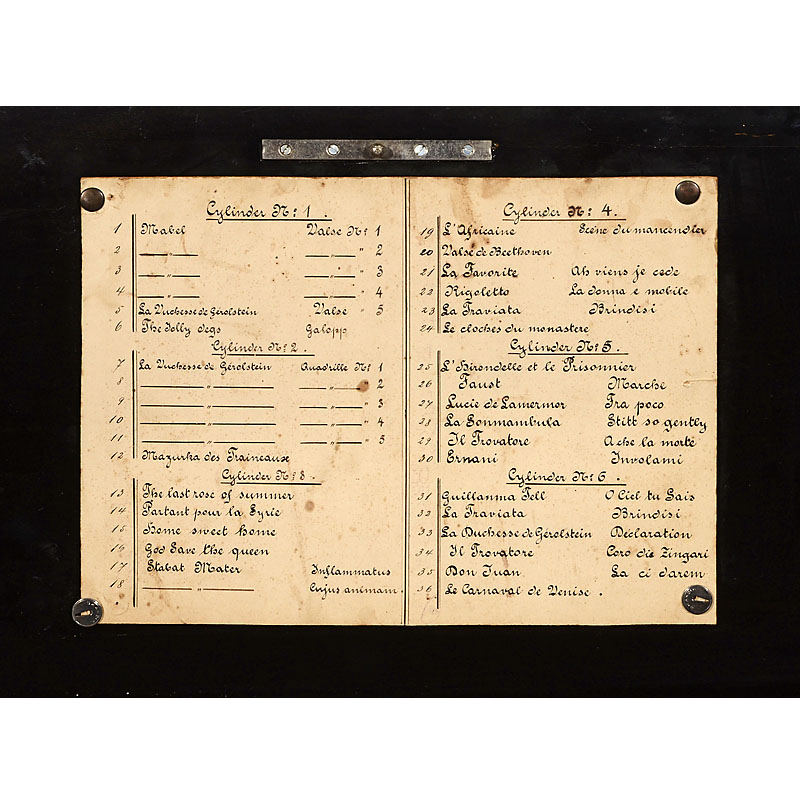 Cylinder Nº 1.
1 Mabel Valse Nº 1
2 —"— —"— " 2
3 —"— —"— " 3
4 —"— —"— " 4
5 La Duchesse de Gérolstein Valse " 5
6 The dolly degs Galopp
Cylinder Nº 2.
7 La Duchesse de Gérolstein Quadrille Nº 1
8 —"— —"— " 2
9 —"— —"— " 3
10 —"— —"— " 4
11 —"— —"— " 5
12 Mazurka des Traineaux
Cylinder Nº 3.
13 The last rose of summer
14 Partant pour la Syrie
15 Home sweet home
16 God Save the queen
17 Stabat Mater Inflammatus
18 —"— Cujus animam.
Cylinder Nº 4.
19 L'Africaine Scene du mancendler
20 Valse de Beethoven
21 La Favorite Ah viens je cede
22 Rigoletto La donna e mobile
23 La Traviata Brindisi
24 Le cloches du monastere
Cylinder Nº 5.
25 L'Hirondelle et le Prisonnier
26 Faust Marche
27 Lucie de Lamermor Fra poco
28 La Sonmambula Stitt so gently
29 Il Trovatore A che la morté
30 Ernani Involami
Cylinder Nº 6.
31 Guillanma Tell O Ciel tu Sais
32 La Traviata Brindisi
33 La Duchesse de Gérolstein Déclaration
34 Il Trovatore Coro die Zingari
35 Don Juan La ci darem
36 Le Carnaval de Venise.